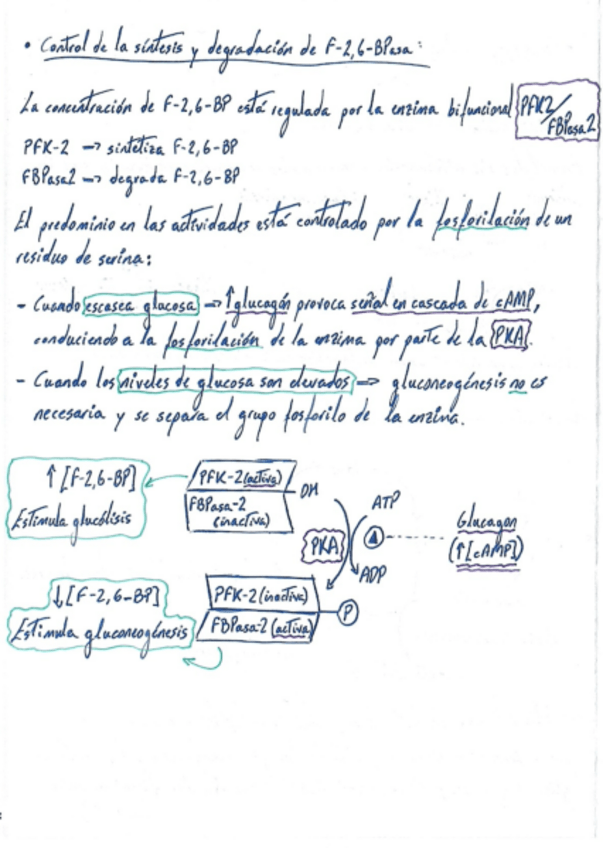 • Control de la síntesis y degradación de F-2,6-BPasa:
La concentración de F-2,6-BP está regulada por la enzima bifuncional PFK2/
FBPasa2
PFK-2 → sintetiza F-2,6-BP
FBPasa2 → degrada F-2,6-BP
El predominio en las actividades está controlado por la fosforilación de un
residuo de serina:
- Cuando escasea glucosa → ↑glucagón provoca señal en cascada de cAMP,
conduciendo a la fosforilación de la enzima por parte de la PKA.
- Cuando los niveles de glucosa son elevados → gluconeogénesis no es
necesaria y se separa el grupo fosforilo de la enzima.
↑[F-2,6-BP]
Estimula glucólisis
PFK-2 (activa)
FBPasa-2
(inactiva)
OH
ATP
PKA
ADP
Glucagon
(↑[cAMP])
↓[F-2,6-BP]
Estimula gluconeogénesis
PFK-2 (inactiva)
FBPasa-2 (activa)
P